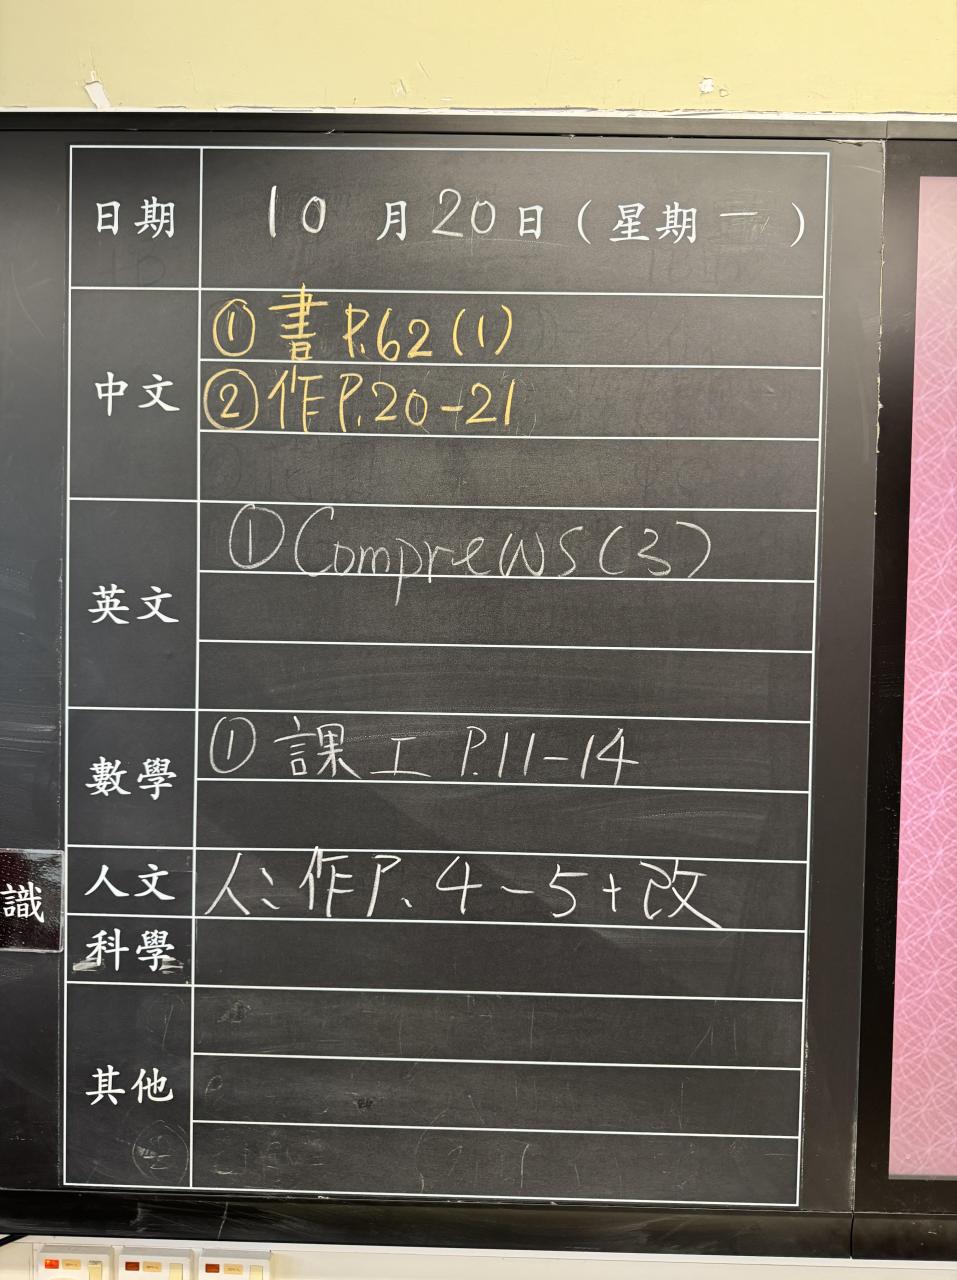 日期 10 月 20 日 ( 星期 一 )
中文
① 書 P.62 (1)
② 作 P.20-21
英文
① Compre WS (3)
數學
① 課工 P.11-14
人文
人: 作 P. 4-5 + 改
科學
其他
識